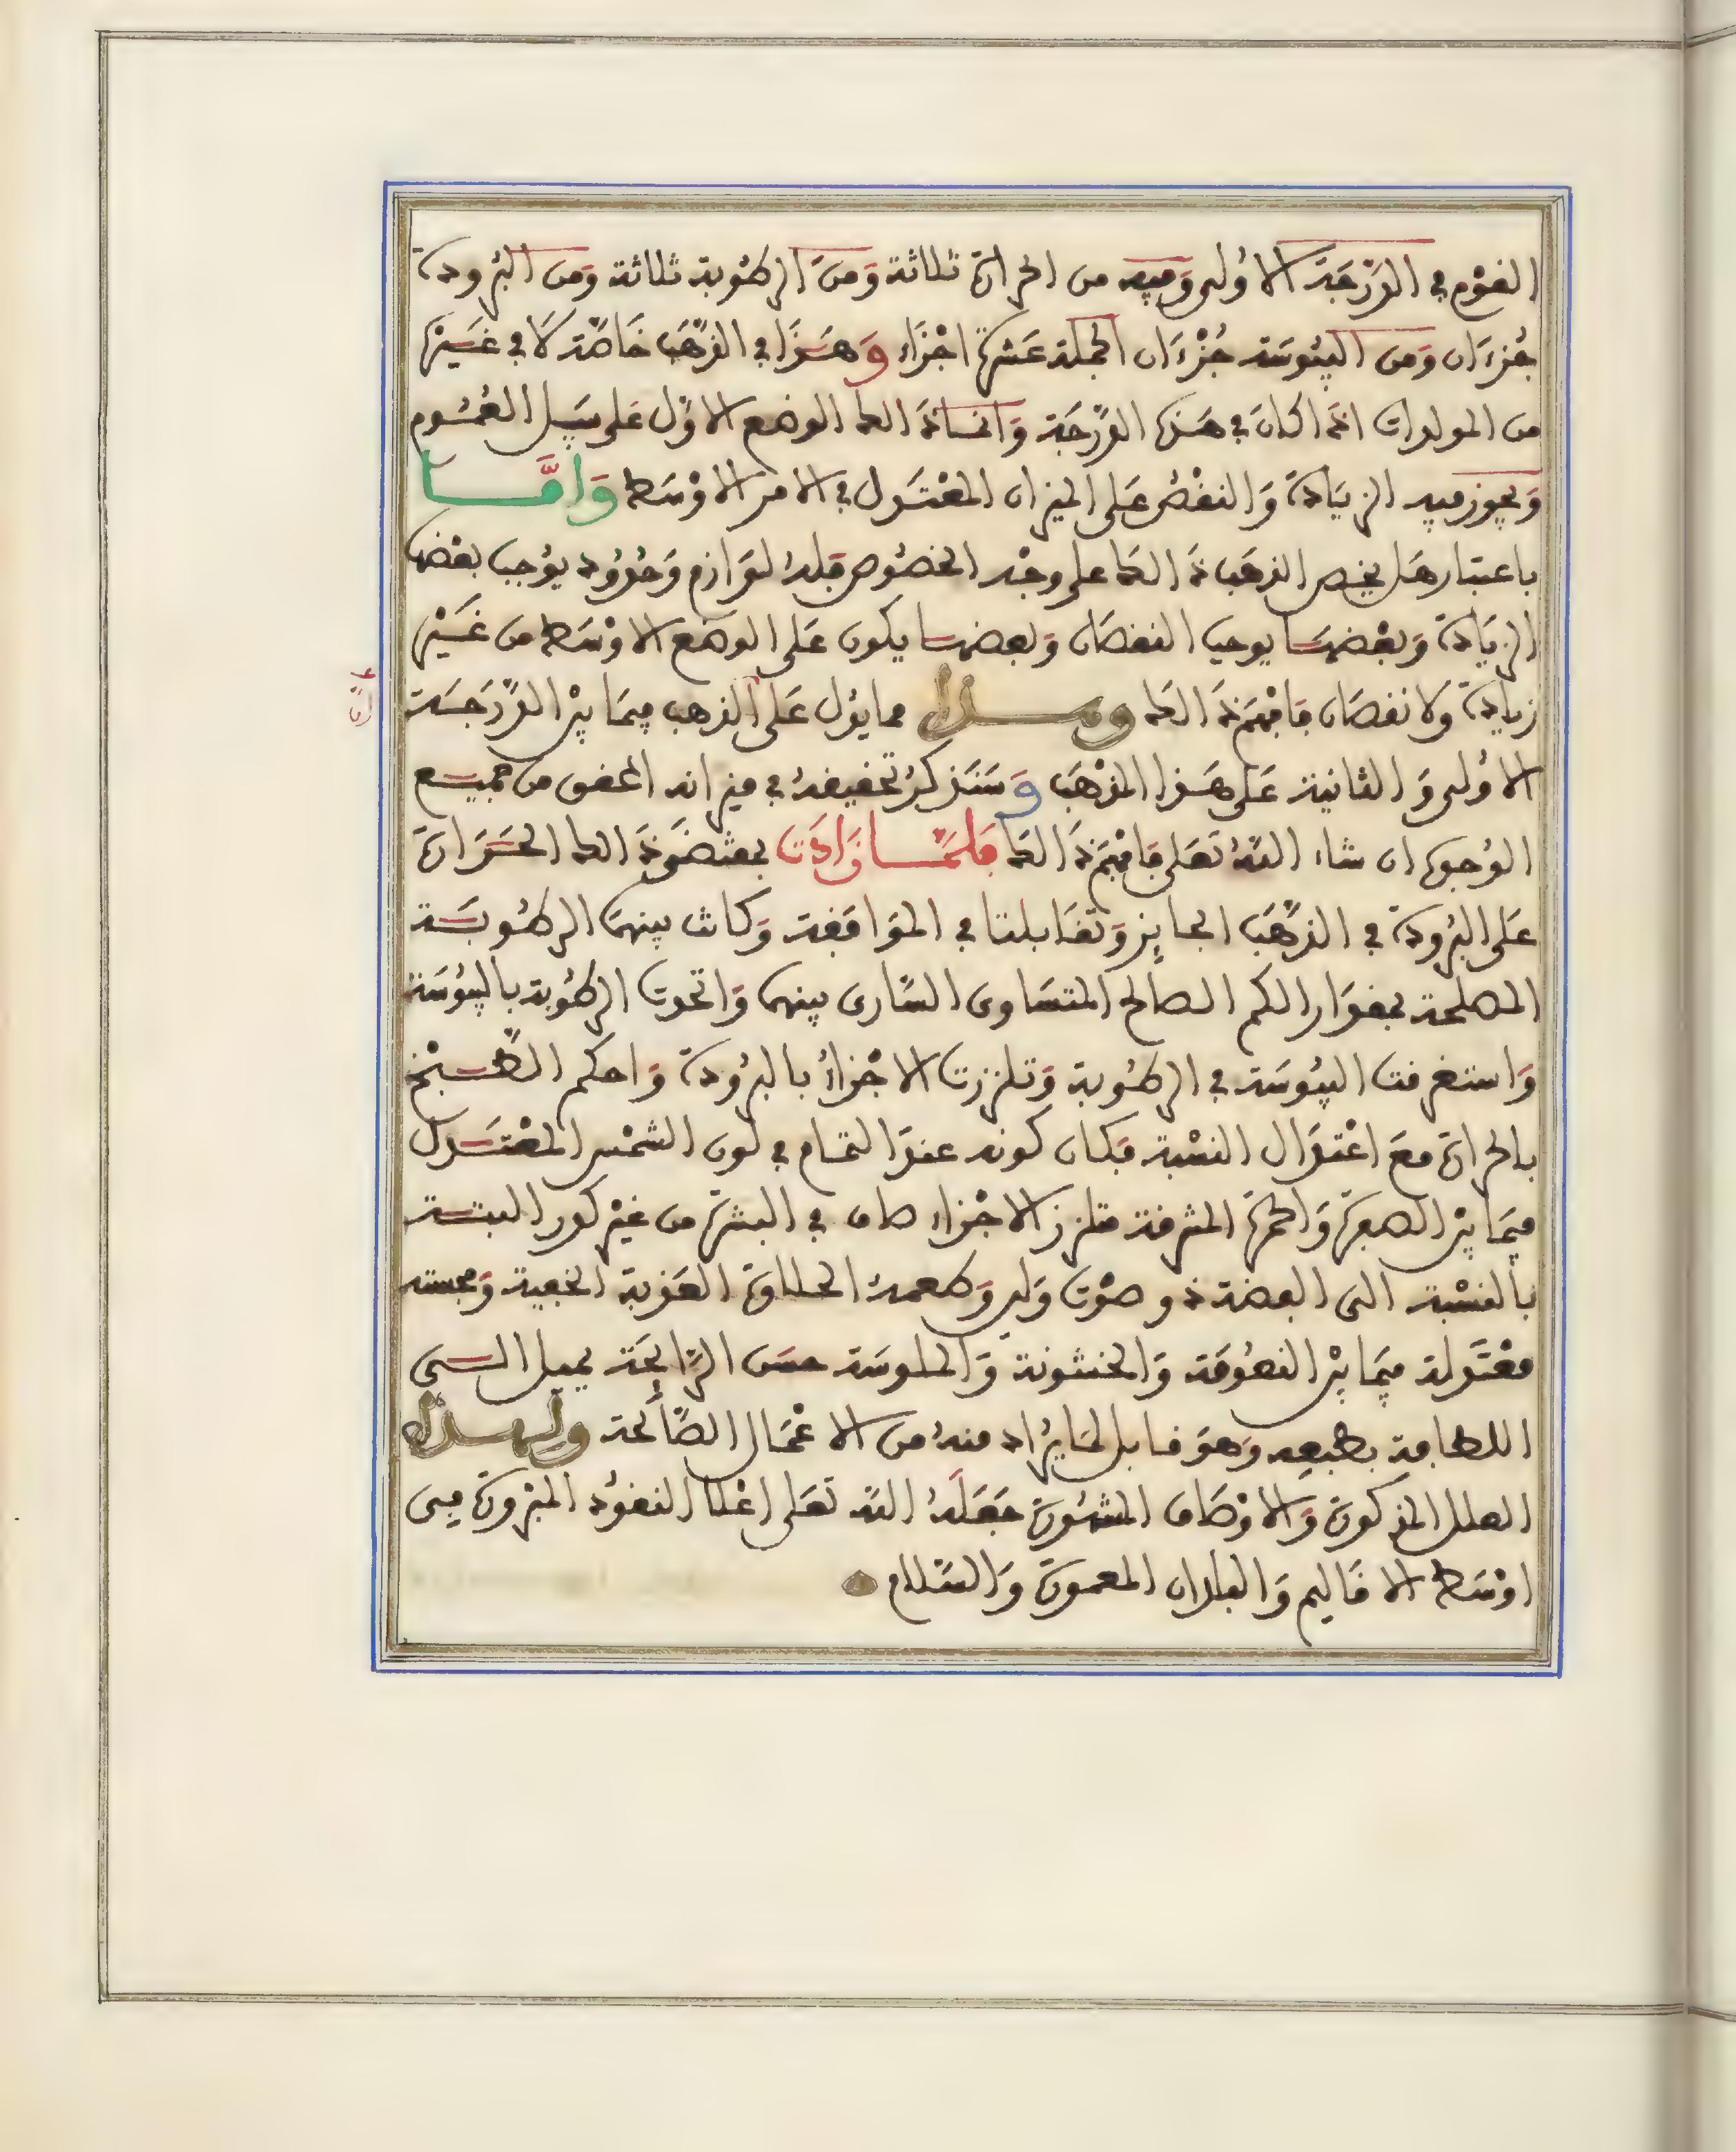 القوم في الدَّرَجَة الاُولى وَفيه من الحرارة ثلاثة وَمن الرطُوبة ثلاثة وَمن البُرودة
جُزءَان وَمن اليبُوسَة جُزْءَان الجملة عَشرة اجْزَاء وَهَذَا في الذهَب خَاصّة لا في غَيرها
من المولدات اذا كان في هَذه الدّرَجَة وَانما ذَالك الوضع الاوّل عَلى سَبيل العُمُوم
وَيجوز فيه الزيَادة وَالنقْصُ عَلى الميزان المعْتَدل في الامر الاوْسَط وَامَّا
باعتبار هَل يخص الذهَب ذَالك على وجْه الخصُوص فله لوَازم وَحُدُود يوُجب بعْضها
الزيَادة وَبعْضهَا يوجب النقصَان وَبعضهَا يكون عَلى الوضع الاوْسَط من غَيْر
زيادة وَلا نقصَان فَافْهَمْ ذَالك وهـــذا مما يدُل عَلى الذهب فيمَا بيْن الدّرَجَــة
أن
الاُولى وَالثانية عَلى هَذا المذْهَب وَسَنَذكرُ تحقيقهُ في ميزانه المحقق من جميــع
الوُجوه ان شاء اللّهُ تعَلى فَافْهَمْ ذَالك فَلمَّــا زَادَت بمقتضَى ذَالك الحَـرَارَة
عَلى البُرودة في الذهَب الجايز وَتقَابلتا في الموَافقة وَكانت بينهمَا الرطُوبَــة
المصلحة بمقدَار الكم الصالح المتسَاوى السَّارى بينهما وَاتحدت الرطُوبة باليبُوسَة
وَاستغرقت اليبُوسَة في الرطُوبة وَتلززت الاجْزَاءُ بالبرُودة وَاحكم الطَّـبْخ
بالحرارة مَعَ اعْتدَال النسْبة فكان كونه عندَ التمَام في لون الشمْس المعْتَـدل
فيمَا بيْن الصفرة وَالحمرة المشرقة متلزز الاجْزاء صاف في البشرة من غيْر كدر البتــة
بالنسْبة الى الفضة ذو صوْت وَلين وَطعمهُ الحلاوَة العَذبة الخفية وَمجسته
معْتَدلة فيمَا بيْن النعُومَة وَالخشونة وَالملوسَة حسَن الرَّايحَة يميل الــى
اللطافة بطبعه وَهوَ قابل لمَا يرُاد منهُ من الاعْمَال الصَّالحة ولهــذه
العلل المذكورة وَالاوْصَاف المشهُورَة جَعَلهُ اللّه تعَلى اعْلا النقوُد المبْرُوزة فــى
اوْسَط الاقَاليم وَالبلدان المعمورَة وَالسَّلام